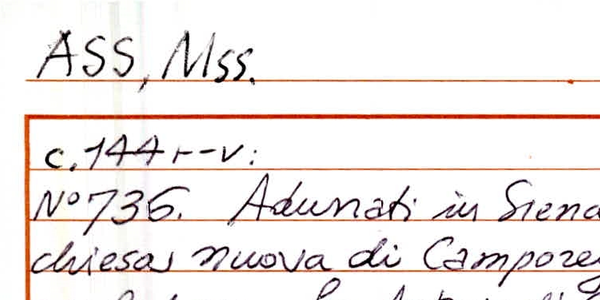 ASS, Mss.
c. 144 r-v:
N° 736. Adunati in Siena
chiesa nuova di Camporeg